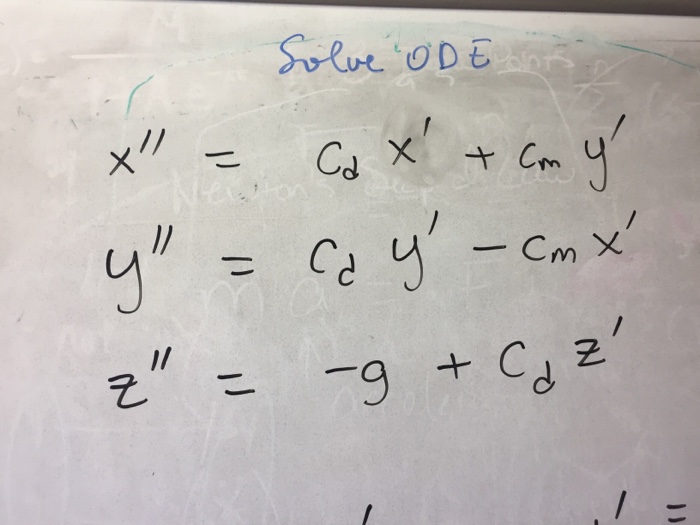 Solve ODE
x'' = c_d x' + c_m y'
y'' = c_d y' - c_m x'
z'' = -g + c_d z'